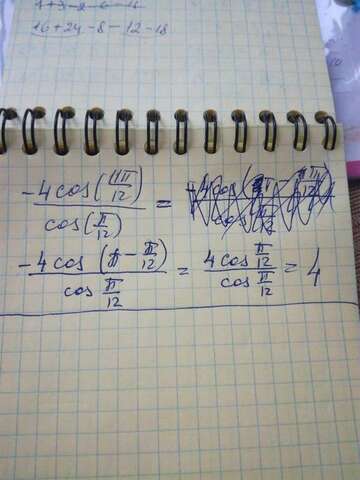 16+24-8-12-18
-4cos(11π/12) / cos(π/12) =
-4cos(π-π/12) / cos π/12 = 4cos π/12 / cos π/12 = 4